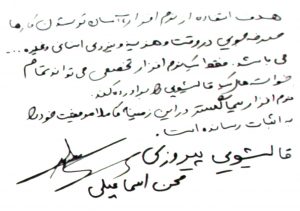 هدف استفاده از نرم افزار آسان تر شدن کارها
صرفه جویی در وقت و هزینه و نیروی انسانی و غیره ...
می باشد. فقط یک نرم افزار تخصصی می تواند تمام
خواسته های یک قالیشویی را برآورده کند.
نرم افزار سیما گستر در این زمینه کاملا موفقیت خود را
به اثبات رسانده است.
قالیشویی پیروزی
محسن اسماعیلی